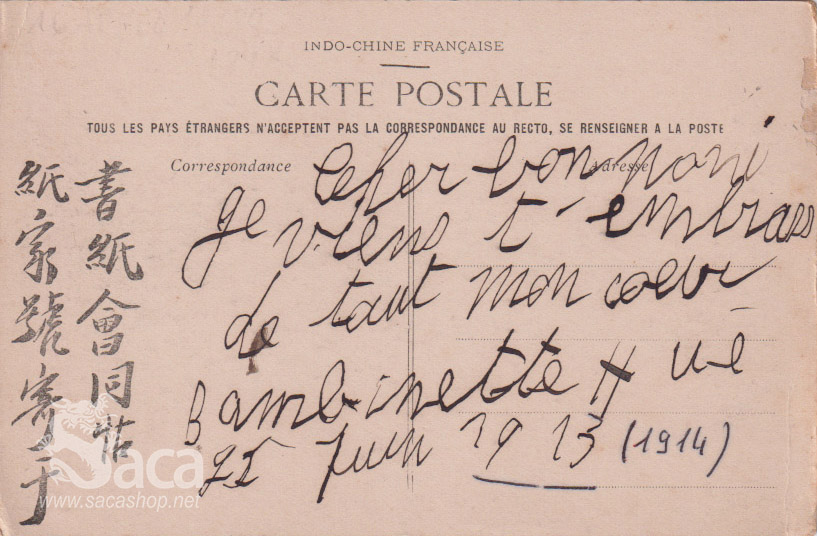 INDO-CHINE FRANÇAISE
CARTE POSTALE
TOUS LES PAYS ÉTRANGERS N'ACCEPTENT PAS LA CORRESPONDANCE AU RECTO, SE RENSEIGNER A LA POSTE
Correspondance
Adresse
Cher bon
je viens t'embrass
de tout mon coeur
Bambinette Hué
Juin 1913 (1914)
書紙會同帖
紙家號寄于
Saca
www.sacashop.net